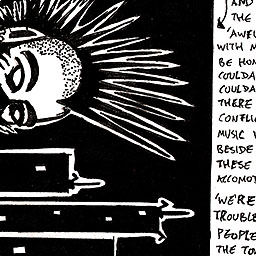 AND
THE
'AWFU
WITH M
BE HON
COULDA
COULDA
THERE
CONFLIC
MUSIC
BESIDE
THESE
ACCOMOT
'WE'RE
TROUBLE
PEOPLE
THE TO